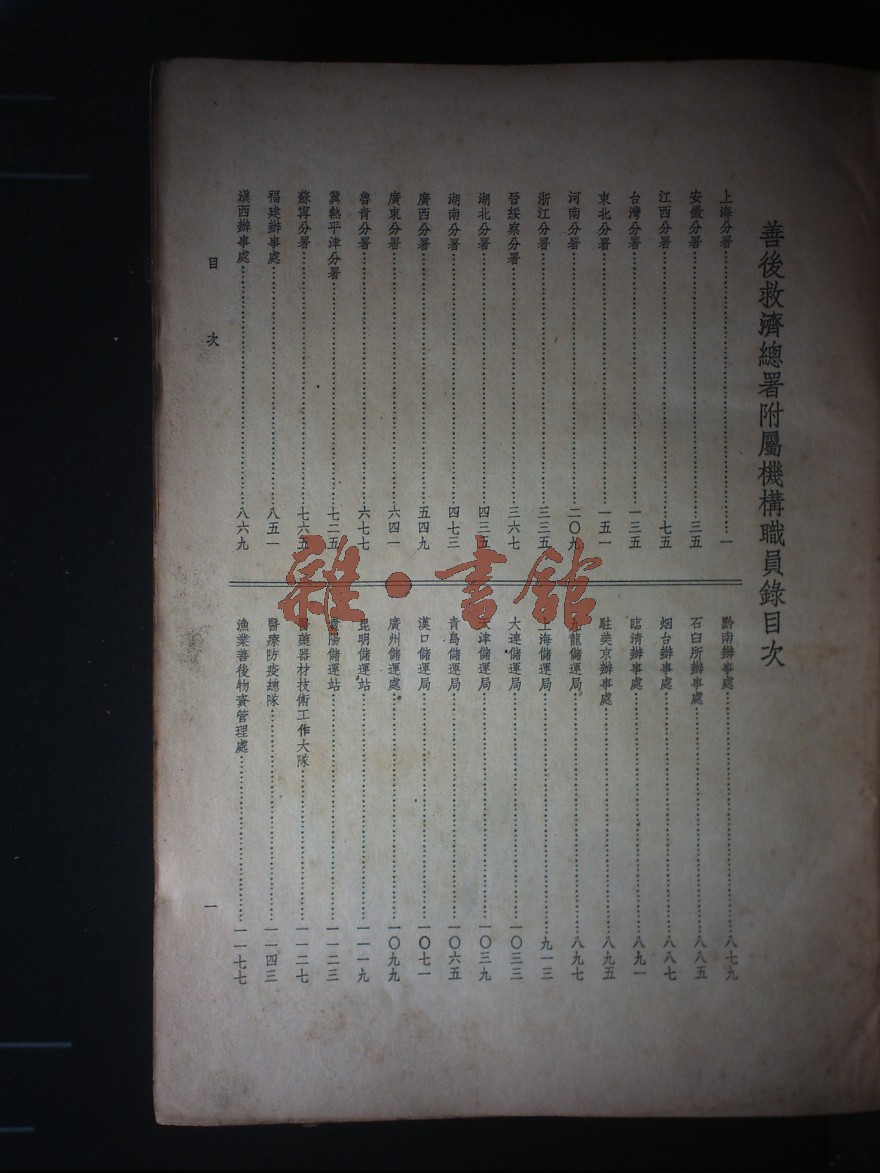 善後救濟總署附屬機構職員錄目次
上海分署……一
安徽分署……三五
江西分署……七五
台灣分署……一三五
東北分署……一五一
河南分署……二〇九
浙江分署……三三五
晉綏察分署……三六七
湖北分署……四三五
湖南分署……四七三
廣西分署……五四九
廣東分署……六四一
魯青分署……六七七
冀熱平津分署……七二五
蘇寧分署……七六五
福建辦事處……八五一
滇西辦事處……八六九
黔南辦事處……八七九
石臼所辦事處……八八五
烟台辦事處……八八七
臨清辦事處……八九一
駐美京辦事處……八九五
九龍儲運局……八九七
上海儲運局……九一三
大連儲運局……一〇三三
天津儲運局……一〇三九
青島儲運局……一〇六五
漢口儲運局……一〇七一
廣州儲運處……一〇九九
昆明儲運站……一一一九
貴陽儲運站……一一二三
醫藥器材技術工作大隊……一一二七
醫療防疫總隊……一一四三
漁業善後物資管理處……一一七七
目次
一
雜·書館